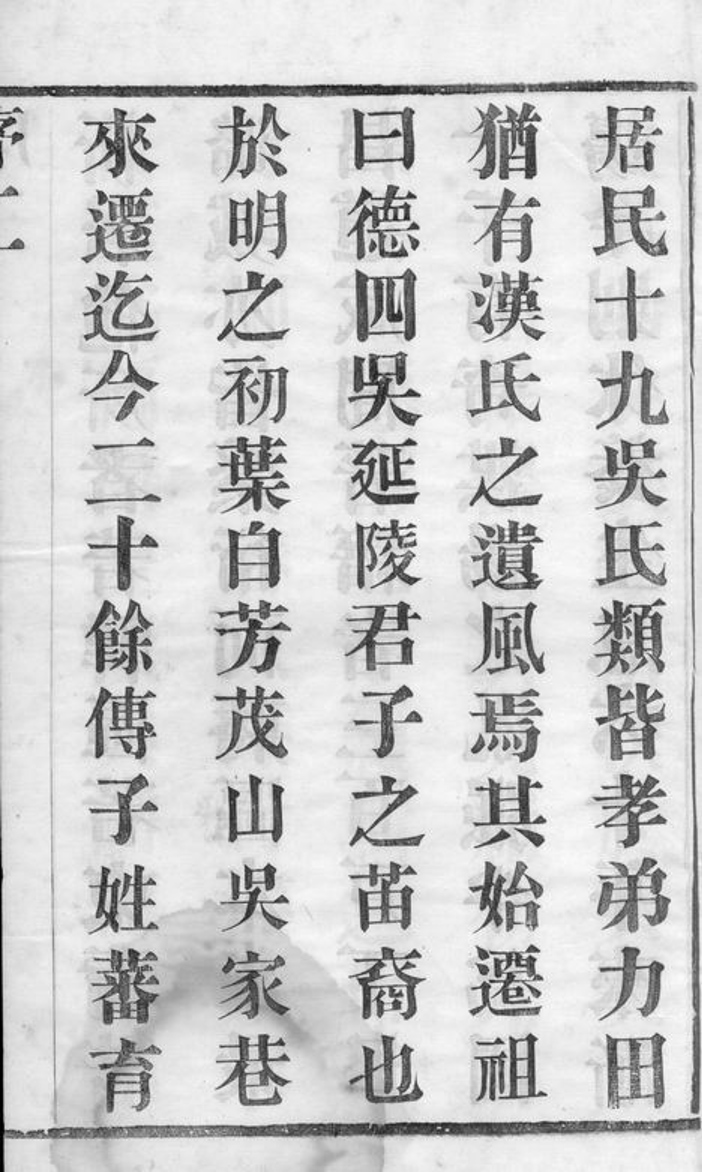 居民十九吳氏類皆孝弟力田
猶有漢氏之遺風焉其始遷祖
曰德四吳延陵君子之苗裔也
於明之初葉自芳茂山吳家巷
來遷迄今二十餘傳子姓蕃育
序二